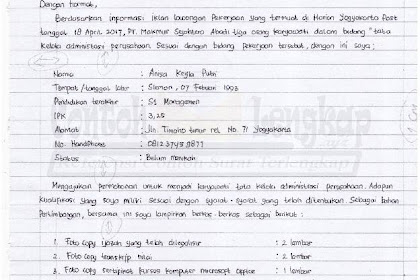 Dengan hormat,
Berdasarkan informasi iklan lowongan Pekerjaan yang termuat di Harian Yogyakarta Post
tanggal 18 April 2017, PT. Makmur Sejahtera Abadi tiga orang karyawati dalam bidang "tata
Kelola administrasi perusahaan. Sesuai dengan bidang pekerjaan tersebut, dengan ini saya;
Nama : Anisa Keyla Putri
Tempat/tanggal lahir : Sleman, 07 Februari 1993
Pendidikan terakhir : S1 Management
IPK : 3,25
Alamat : Jln. Timoho timur rel. No. 71 Yogyakarta
No. Handphone : 081237459877
Status : Belum menikah
Mengajukan permohonan untuk menjadi karyawati tata kelola administrasi perusahaan. Adapun
Kualifikasi yang saya miliki sesuai dengan syarat-syarat yang telah ditentukan. Sebagai bahan
Pertimbangan, bersama ini saya lampirkan berkas-berkas sebagai berikut :
1. Foto copy ijazah yang telah dilegalisir : 2 lembar
2. Foto copy transkrip nilai : 2 lembar
3. Foto copy sertifikat kursus komputer microsoft office : 1 lembar